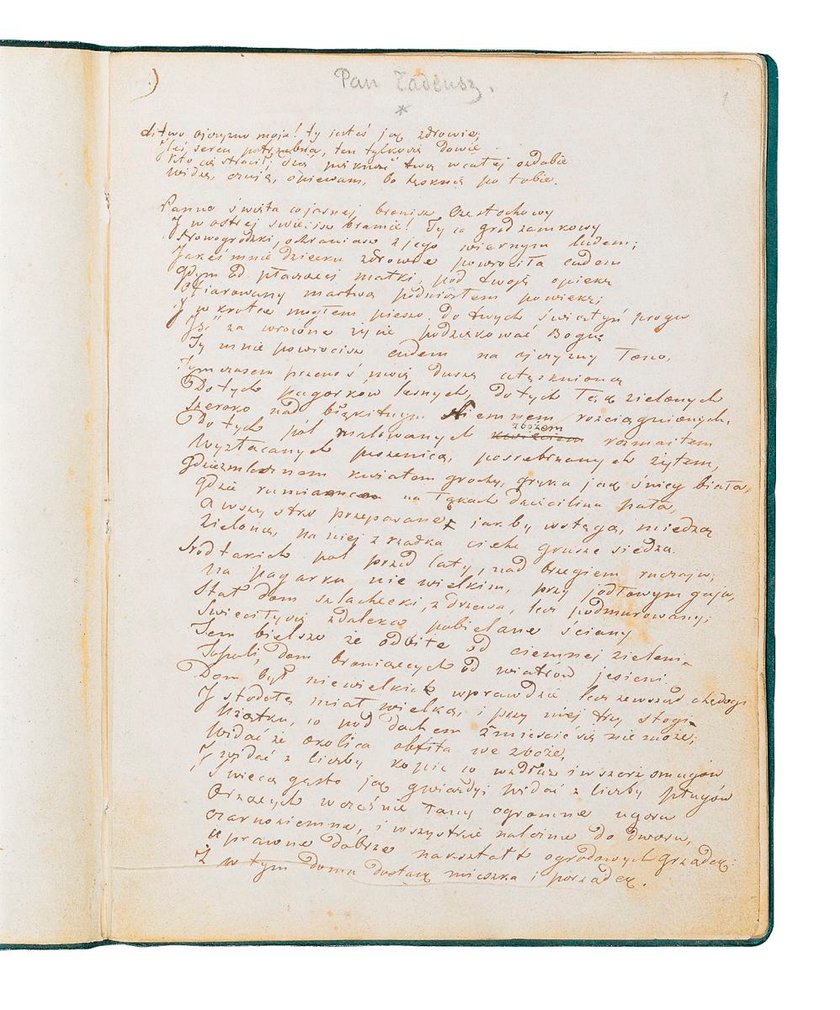 Pan Tadeusz.
*
Litwo ojczyzno moja! ty jesteś jak zdrowie,
ten tylko się dowie
Kto cię stracił; dziś piękność twą w całej ozdobie
Widzę, czuję, opiewam, bo tęsknię po tobie.
Panno święta co jasnej bronisz Częstochowy
I w ostrej świecisz bramie! Ty co gród zamkowy
Nowogrodzki, ochraniasz z jego wiernym ludem;
Jakeś mnie dziecko zdrowie powróciła cudem
Gdym od płaczącej matki, pod twoję opiekę
Ofiarowany martwą podniosłem powiekę;
I w krotce mogłem pieszo, do twych świątyń progu
Iść za wrócone życie podziękować Bogu
Ty mnie powrócisz cudem na ojczyzny łono,
Tymczasem przenoś moją duszę utęsknioną
Do tych pagórków leśnych, do tych łąk zielonych
Szeroko nad błękitnym Niemnem rozciągnionych,
Do tych pól malowanych zbożem rozmaitem
Wyzłacanych pszenicą, posrebrzanych żytem,
Gdzie kwiatem grochy, gryka jak śnieg biała,
Gdzie na łąkach dzięcielina pała,
A wszystko przepasane jakby wstęgą, miedzą
Zieloną, na niej z rzadka ciche grusze siedzą.
Śród takich pól przed laty, nad brzegiem ruczaju,
Na pagórku niewielkim, przy jodłowym gaju,
Stał dom szlachecki, z drzewa, lecz podmurowany;
Świeciły się zdaleka pobielane ściany
Tem bielsze że odbite od ciemnej zieleni
Topoli, dom broniących od wiatrów jesieni.
Dom był niewielki wprawdzie lecz zewsząd chędogi
I stodołę miał wielką, i przy niej trzy stogi
Użątku, co pod dachem zmieścić się nie może;
Widać że okolica obfita we zboże,
I widać z liczby kopic co wzdłuż i wszerz smugów
Świecą gęsto jak gwiazdy; widać z liczby pługów
Orzących wcześnie łany ogromne ugoru
Czarnoziemne, i wszystkie należne do dworu,
Uprawne dobrze nakształt ogrodowych grządek:
Ż w tym domu dostatek mieszka i porządek.